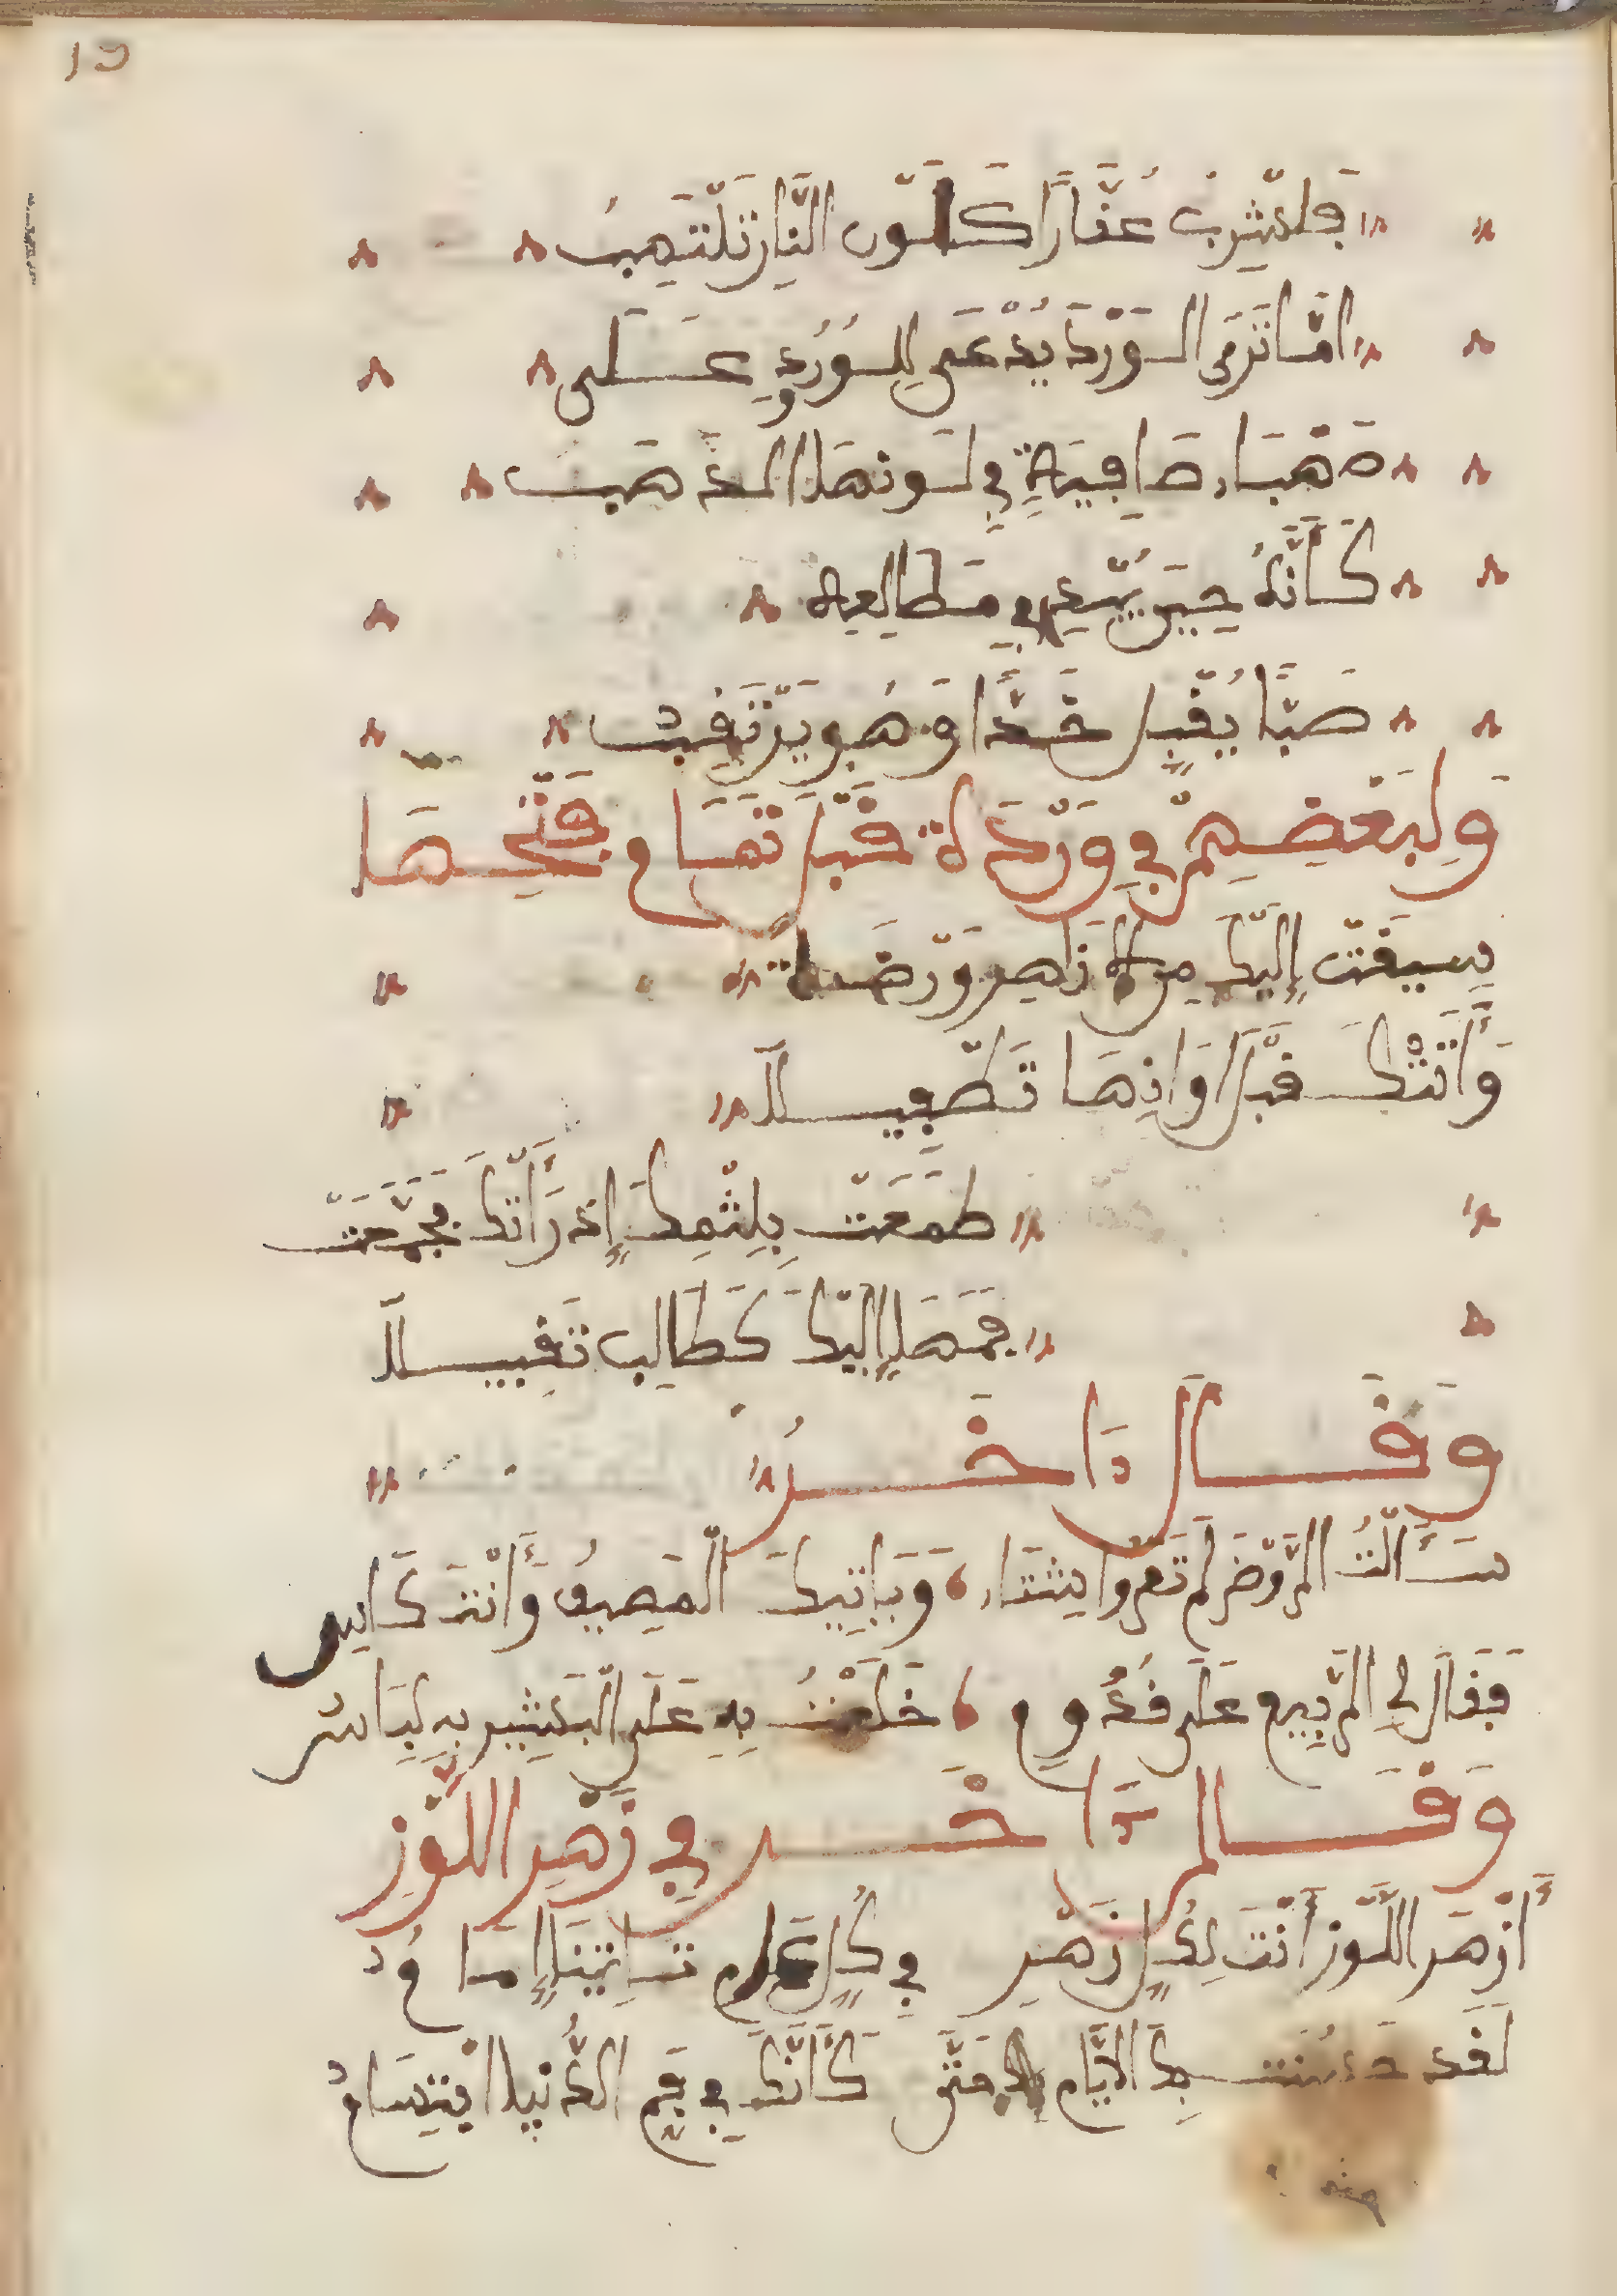 15
فلتشرب عُقَارًا كَلَوْنِ النَّارِ تَلْتَهِبُ
امَا تَرَى الوَرْدَ يُدْعَى لِلوُرُودِ عَلَى
صَهْبَاء صَافِيَةٍ فِي لَونهَا الذَهَب
كَأَنَّهُ حِينَ يَبْدُو فِي مَطَالِعِهِ
صَبًّا يُقَبِّل خَدًّا وَهُو يَرْتَقِبُ
وَلِبَعْضِهِمْ فِي وَرْدَةٍ قَبْلَ تَمَامِ فَتْحِهَا
سِيقَتْ إِلَيْكَ مِنَ الأَزَاهِر وَرْدَة
وَأَتَتْكَ قَبْلَ أَوَانِهَا تَطْفِيلًا
طَمَعَتْ بِلَثْمِكَ إِذ رَأَتْكَ فَجَمَّعَتْ
فَمَهَا إِلَيْكَ كَطَالِب تَقْبِيلًا
وَقَالَ ءَاخَرُ
سَأَلْتُ الرَّوْضَ لِمْ تَعْرَى شِتَاء وَيَأْتِيكَ المَصِيفُ وَأَنْتَ كَاسِ
فَقَالَ لِي الرَّبِيع عَلَى قُدُومٍ خَلَعْتُ بِهِ عَلَى البَشِير بِهِ لِبَاسِ
وَقَالَ ءَاخَر فِي زَهْرِ اللَّوْزِ
أَزَهْرَ اللَّوْزِ أَنْتَ لِكُلِّ زَهْرٍ فِي كُلِّ عَامٍ تَاتِينَا إِمَامُ
لَقَد حَسُنَتْ بِكَ الأَيَّام حَتَّى كَأَنَّكَ فِي فَمِ الدُّنْيَا ابْتِسَامُ